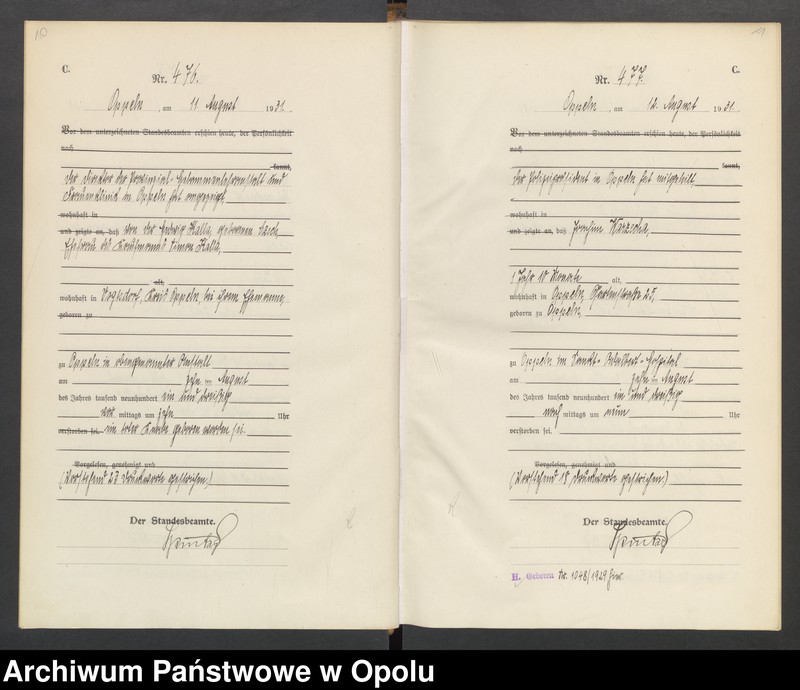 C.
Nr. 476.
Oppeln, am 11. August 1931.
Vor dem unterzeichneten Standesbeamten erschien heute, der Persönlichkeit
nach
kannt,
der Direktor der Provinzial-Hebammenlehranstalt und
Frauenklinik in Oppeln hat angezeigt
wohnhaft in
und zeigte an, daß von der Hedwig Kalla, geborenen
Ehefrau des Kaufmanns Simon Kalla,
alt,
wohnhaft in Vogtsdorf, Kreis Oppeln, bei ihrem Ehemanne,
geboren zu
zu Oppeln in obengenannter Anstalt
am zehn ten August
des Jahres tausend neunhundert ein und dreißig
vor mittags um zehn Uhr
verstorben sei. ein toter Knabe geboren worden sei.
Vorgelesen, genehmigt und
(Vorstehend 23 Druckworte gestrichen.)
Der Standesbeamte.
C.
Nr. 477.
Oppeln, am 12. August 1931.
Vor dem unterzeichneten Standesbeamten erschien heute, der Persönlichkeit
nach
kannt,
Der Polizeipräsident in Oppeln hat mitgeteilt,
wohnhaft in
und zeigte an, daß Joachim Warzecha,
1 Jahr 10 Monate alt,
wohnhaft in Oppeln, Gartenstraße 25,
geboren zu Oppeln,
zu Oppeln im Sankt-Adalbert-Hospital
am zehn ten August
des Jahres tausend neunhundert ein und dreißig
nach mittags um neun Uhr
verstorben sei.
Vorgelesen, genehmigt und
(Vorstehend 18 Druckworte gestrichen)
Der Standesbeamte.
H. Geboren Nr. 1048/1929 hier.
Archiwum Państwowe w Opolu